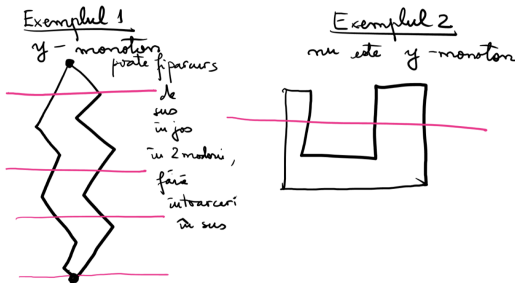 Exemplul 1
y - monoton
poate fi parcurs
de
sus
în jos
în 2 moduri,
fără
întoarceri
în sus
Exemplul 2
nu este y-monoton